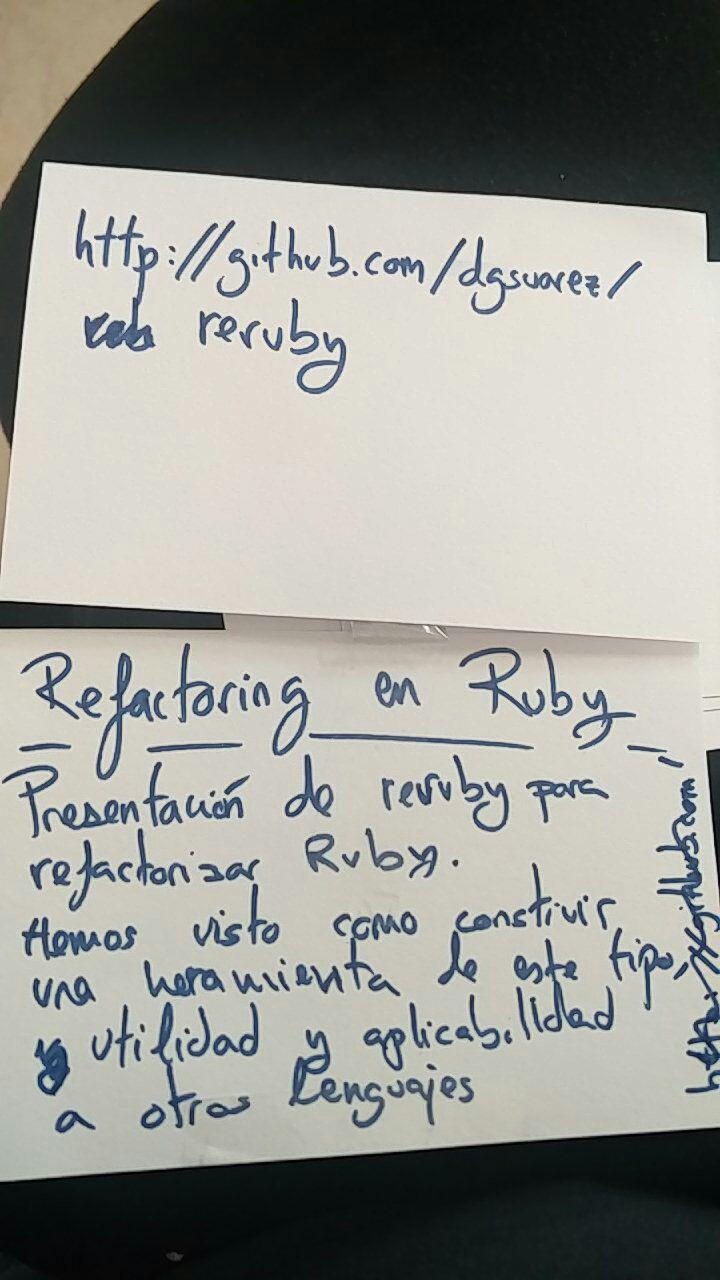 http://github.com/dgsuarez/
reruby
Refactoring en Ruby
Presentación de reruby para
refactorizar Ruby.
Hemos visto como construir
una heramienta de este tipo,
y utilidad y aplicabilidad
a otros lenguajes
http://github.com/